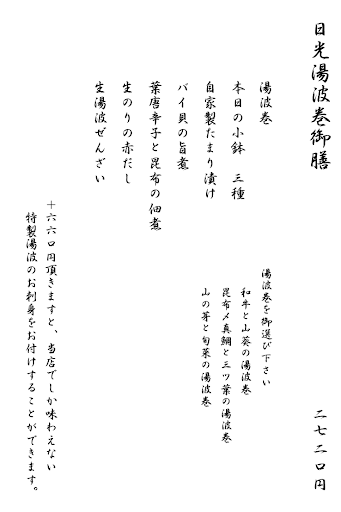 日光湯波巻御膳 二七二〇円
湯波巻
本日の小鉢 三種
自家製たまり漬け
バイ貝の旨煮
葉唐辛子と昆布の佃煮
生のりの赤だし
生湯波ぜんざい
湯波巻を御選び下さい
和牛と山葵の湯波巻
昆布〆真鯛と三ツ葉の湯波巻
山の芋と旬菜の湯波巻
+六六〇円頂きますと、当店でしか味わえない
特製湯波のお刺身をお付けすることができます。